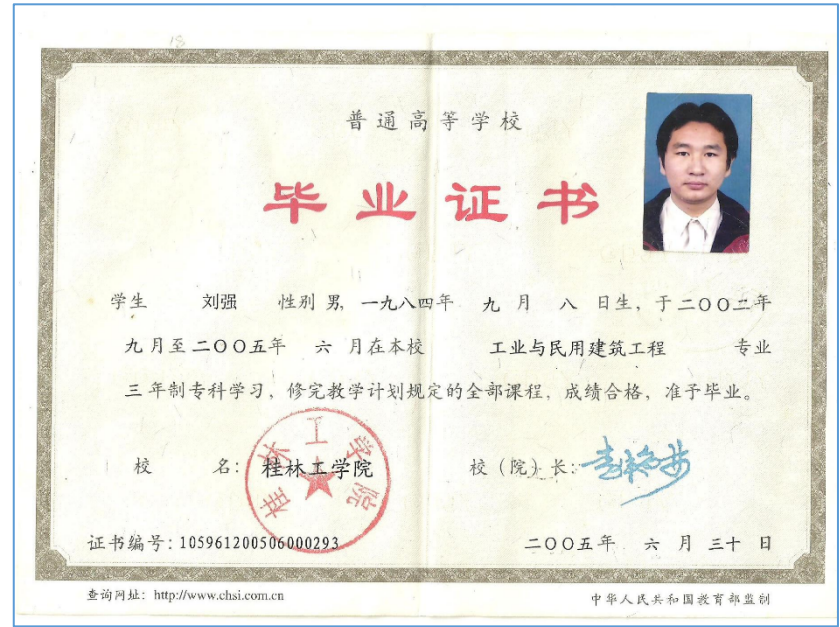 18
普通高等学校
毕业证书
学生 刘强 性别 男, 一九八四年 九 月 八 日生, 于二〇〇二年
九月至二〇〇五年 六 月在本校 工业与民用建筑工程 专业
三 年制专科学习, 修完教学计划规定的全部课程, 成绩合格, 准予毕业。
校 名: 桂林工学院 校(院)长:
桂林工学院
证书编号: 105961200506000293 二〇〇五年 六 月 三十 日
查询网址: http://www.chsi.com.cn 中华人民共和国教育部监制